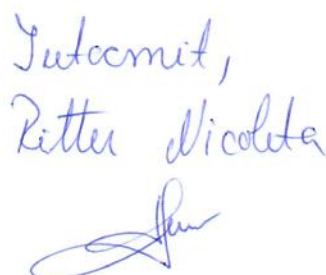 Intocmit,
Ritter Nicoleta